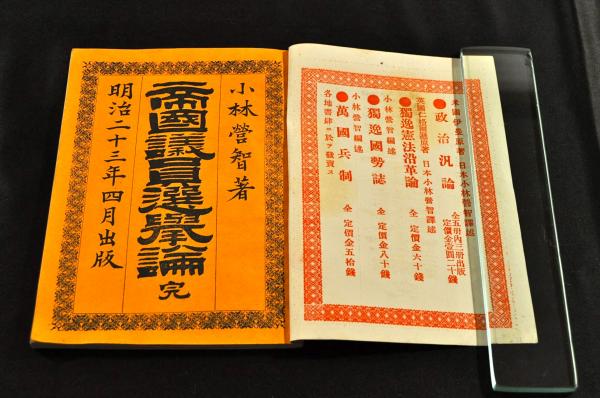 米國伊曼原著 日本小林營智譯述
●政治汎論 全五册内三册出版 定價金壹圓二十錢
英國 原著 日本小林營智譯述
●獨逸憲法沿革論 全 定價金六十錢
小林營智編述
●獨逸國勢誌 全 定價金八十錢
小林營智編述
●萬國兵制 全 定價金五拾錢
各地書肆ニ於テ發賣ス
小林營智著
帝國議員選擧論 完
明治二十三年四月出版